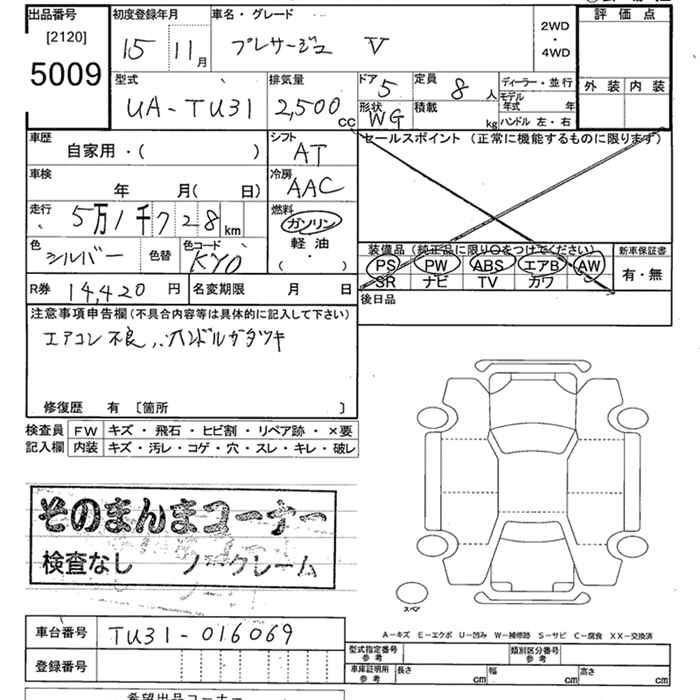 出品番号 [2120] 5009
初度登録年月 15 11月
車名・グレード プレサージュ V
2WD・4WD
評価点
外装 内装
型式 UA-TU31
排気量 2,500 CC
ドア 5 定員 8人
形状 WG 積載 kg
ディーラー・並行
モデル年式 年
ハンドル 左・右
車歴 自家用・( )
シフト AT
セールスポイント (正常に機能するものに限ります)
車検 年 月( 日)
冷房 AAC
走行 5万1千728km
燃料 ガソリン 軽油 ( ・ )
色 シルバー 色替 色コード KY0
装備品 (純正品に限り〇をつけてください)
PS PW ABS エアB AW
SR ナビ TV カワ
新車保証書 有・無
R券 14,420円 名変期限 月 日
後日品
注意事項申告欄(不具合内容等は具体的に記入して下さい)
エアコン不良、ハンドルガタツキ
修復歴 有 〔箇所 〕
検査員記入欄
FW キズ・飛石・ヒビ割・リペア跡・×要
内装 キズ・汚レ・コゲ・穴・スレ・キレ・破レ
そのまんまコーナー
検査なし ノークレーム
スペア
A-キズ E-エクボ U-凹み W-補修跡 S-サビ C-腐食 XX-交換済
車台番号 TU31-016069
登録番号
型式指定番号 参考 類別区分番号 参考
車庫証明用 参考 長さ cm 幅 cm 高さ cm
希望出品コーナー